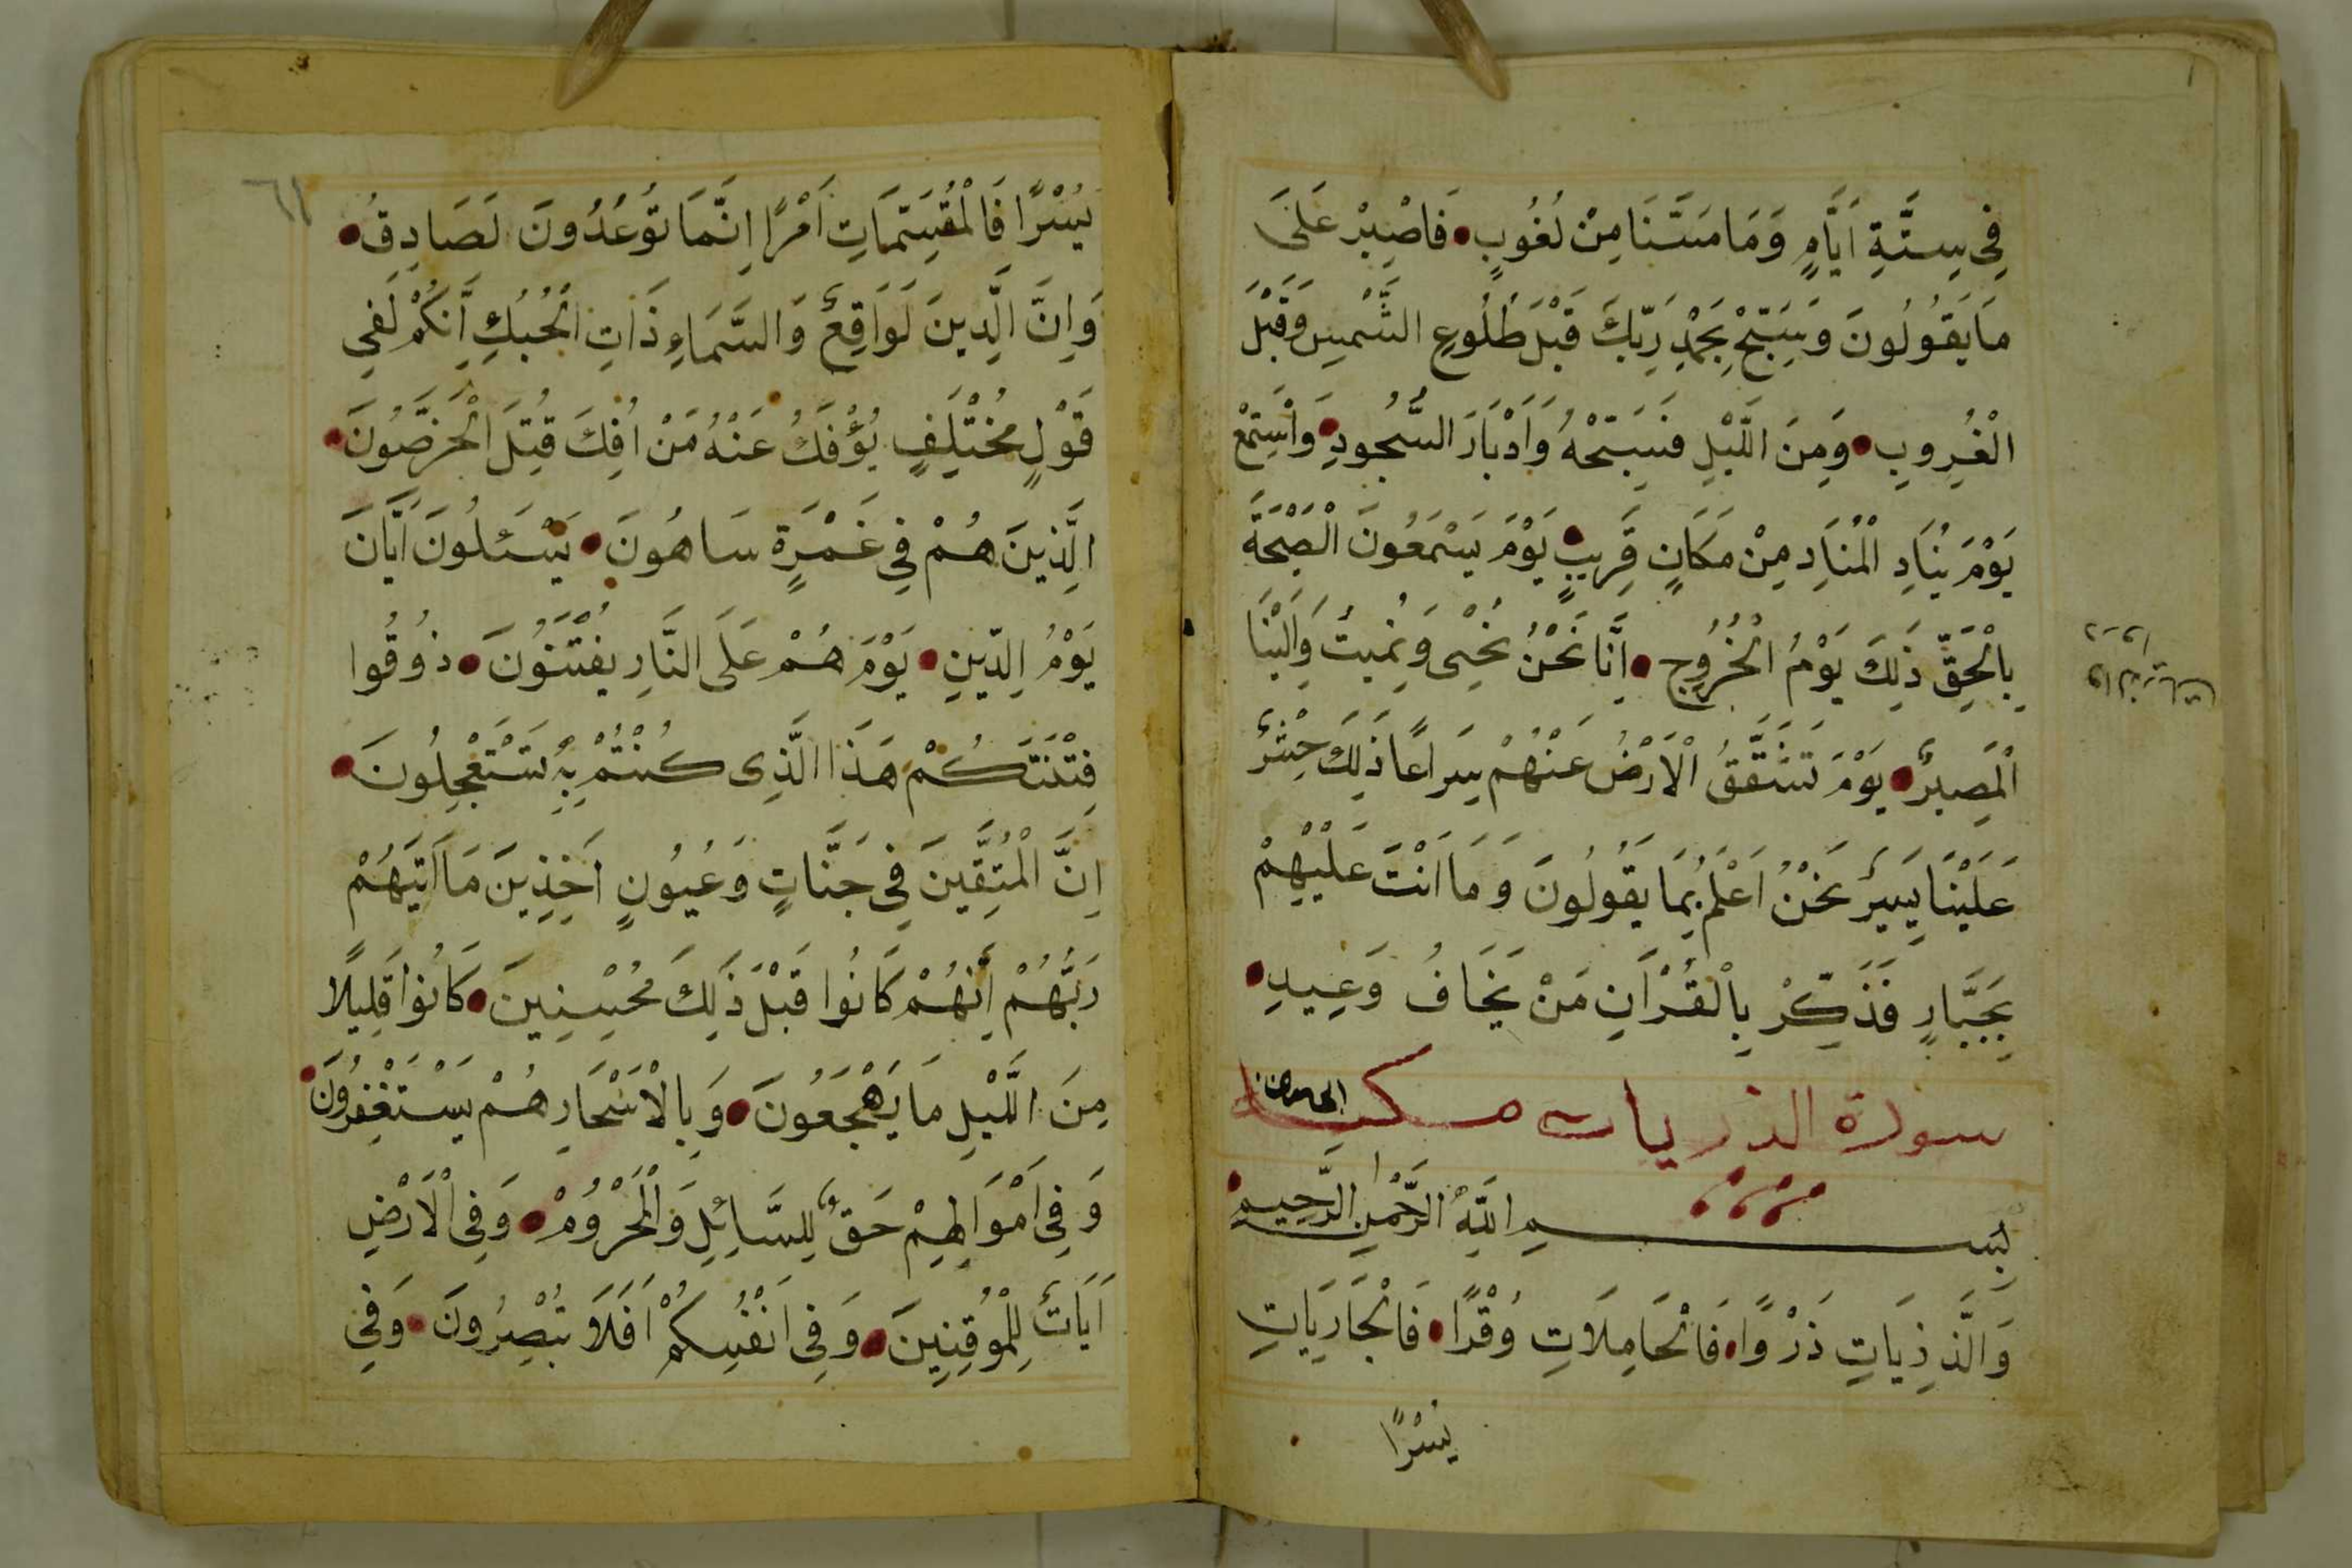 فِي سِتَّةِ اَيَّامٍ وَمَا مَسَّنَا مِنْ لُغُوبٍ فَاصْبِرْ عَلَى
مَا يَقُولُونَ وَسَبِّحْ بِحَمْدِ رَبِّكَ قَبْلَ طُلُوعِ الشَّمْسِ وَقَبْلَ
الْغُرُوبِ وَمِنَ اللَّيْلِ فَسَبِّحْهُ وَاَدْبَارَ السُّجُودِ وَاسْتَمِعْ
يَوْمَ يُنَادِ الْمُنَادِ مِنْ مَكَانٍ قَرِيبٍ يَوْمَ يَسْمَعُونَ الْصَيْحَةَ
بِالْحَقِّ ذَلِكَ يَوْمُ الْخُرُوجِ اِنَّا نَحْنُ نُحْيِى وَنُمِيتُ وَاِلَيْنَا
الْمَصِيرُ يَوْمَ تَشَقَّقُ الْاَرْضُ عَنْهُمْ سِرَاعًا ذَلِكَ حَشْرٌ
عَلَيْنَا يَسِيرٌ نَحْنُ اَعْلَمُ بِمَا يَقُولُونَ وَمَا اَنْتَ عَلَيْهِمْ
بِجَبَّارٍ فَذَكِّرْ بِالْقُرْاَنِ مَنْ يَخَافُ وَعِيدِ
سورة الذريات مكية
بِسْمِ اللَّهِ الرَّحْمَنِ الرَّحِيمِ
وَالَّذِيَاتِ ذَرْوًا فَالْحَامِلَاتِ وُقْرًا فَالْجَارِيَاتِ
يُسْرًا
٦١
يُسْرًا فَالْمُقَسِّمَاتِ اَمْرًا اِنَّمَا تُوعَدُونَ لَصَادِقٌ
وَاِنَّ الَّدِينَ لَوَاقِعٌ وَالسَّمَاءِ ذَاتِ الْحُبُكِ اِنَّكُمْ لَفِي
قَوْلٍ مُخْتَلِفٍ يُؤْفَكُ عَنْهُ مَنْ اُفِكَ قُتِلَ الْخَرَّصُونَ
الَّذِينَ هُمْ فِي غَمْرَةٍ سَاهُونَ يَسْئَلُونَ اَيَّانَ
يَوْمُ الِدّينِ يَوْمَ هُمْ عَلَى النَّارِ يُفْتَنُونَ ذُوقُوا
فِتْنَتَكُمْ هَذَا الَّذِى كُنْتُمْ بِهِ تَسْتَعْجِلُونَ
اِنَّ الْمُتَّقِينَ فِي جَنَّاتٍ وَعُيُونٍ اَخِذِينَ مَا اَتَيهُمْ
رَبُّهُمْ اِنَّهُمْ كَانُوا قَبْلَ ذَلِكَ مُحْسِنِينَ كَانُوا قَلِيلًا
مِنَ اللَّيْلِ مَا يَهْجَعُونَ وَبِالْاَسْحَارِ هُمْ يَسْتَغْفِرُونَ
وَفِي اَمْوَاطِهِمْ حَقٌّ لِلسَّائِلِ وَالْمَحْرُومْ وَفِى الْاَرْضِ
اَيَاتٌ لِلْمُوقِنِينَ وَفِى اَنْفُسِكُمْ اَفَلَا تُبْصِرُونَ وَفِي